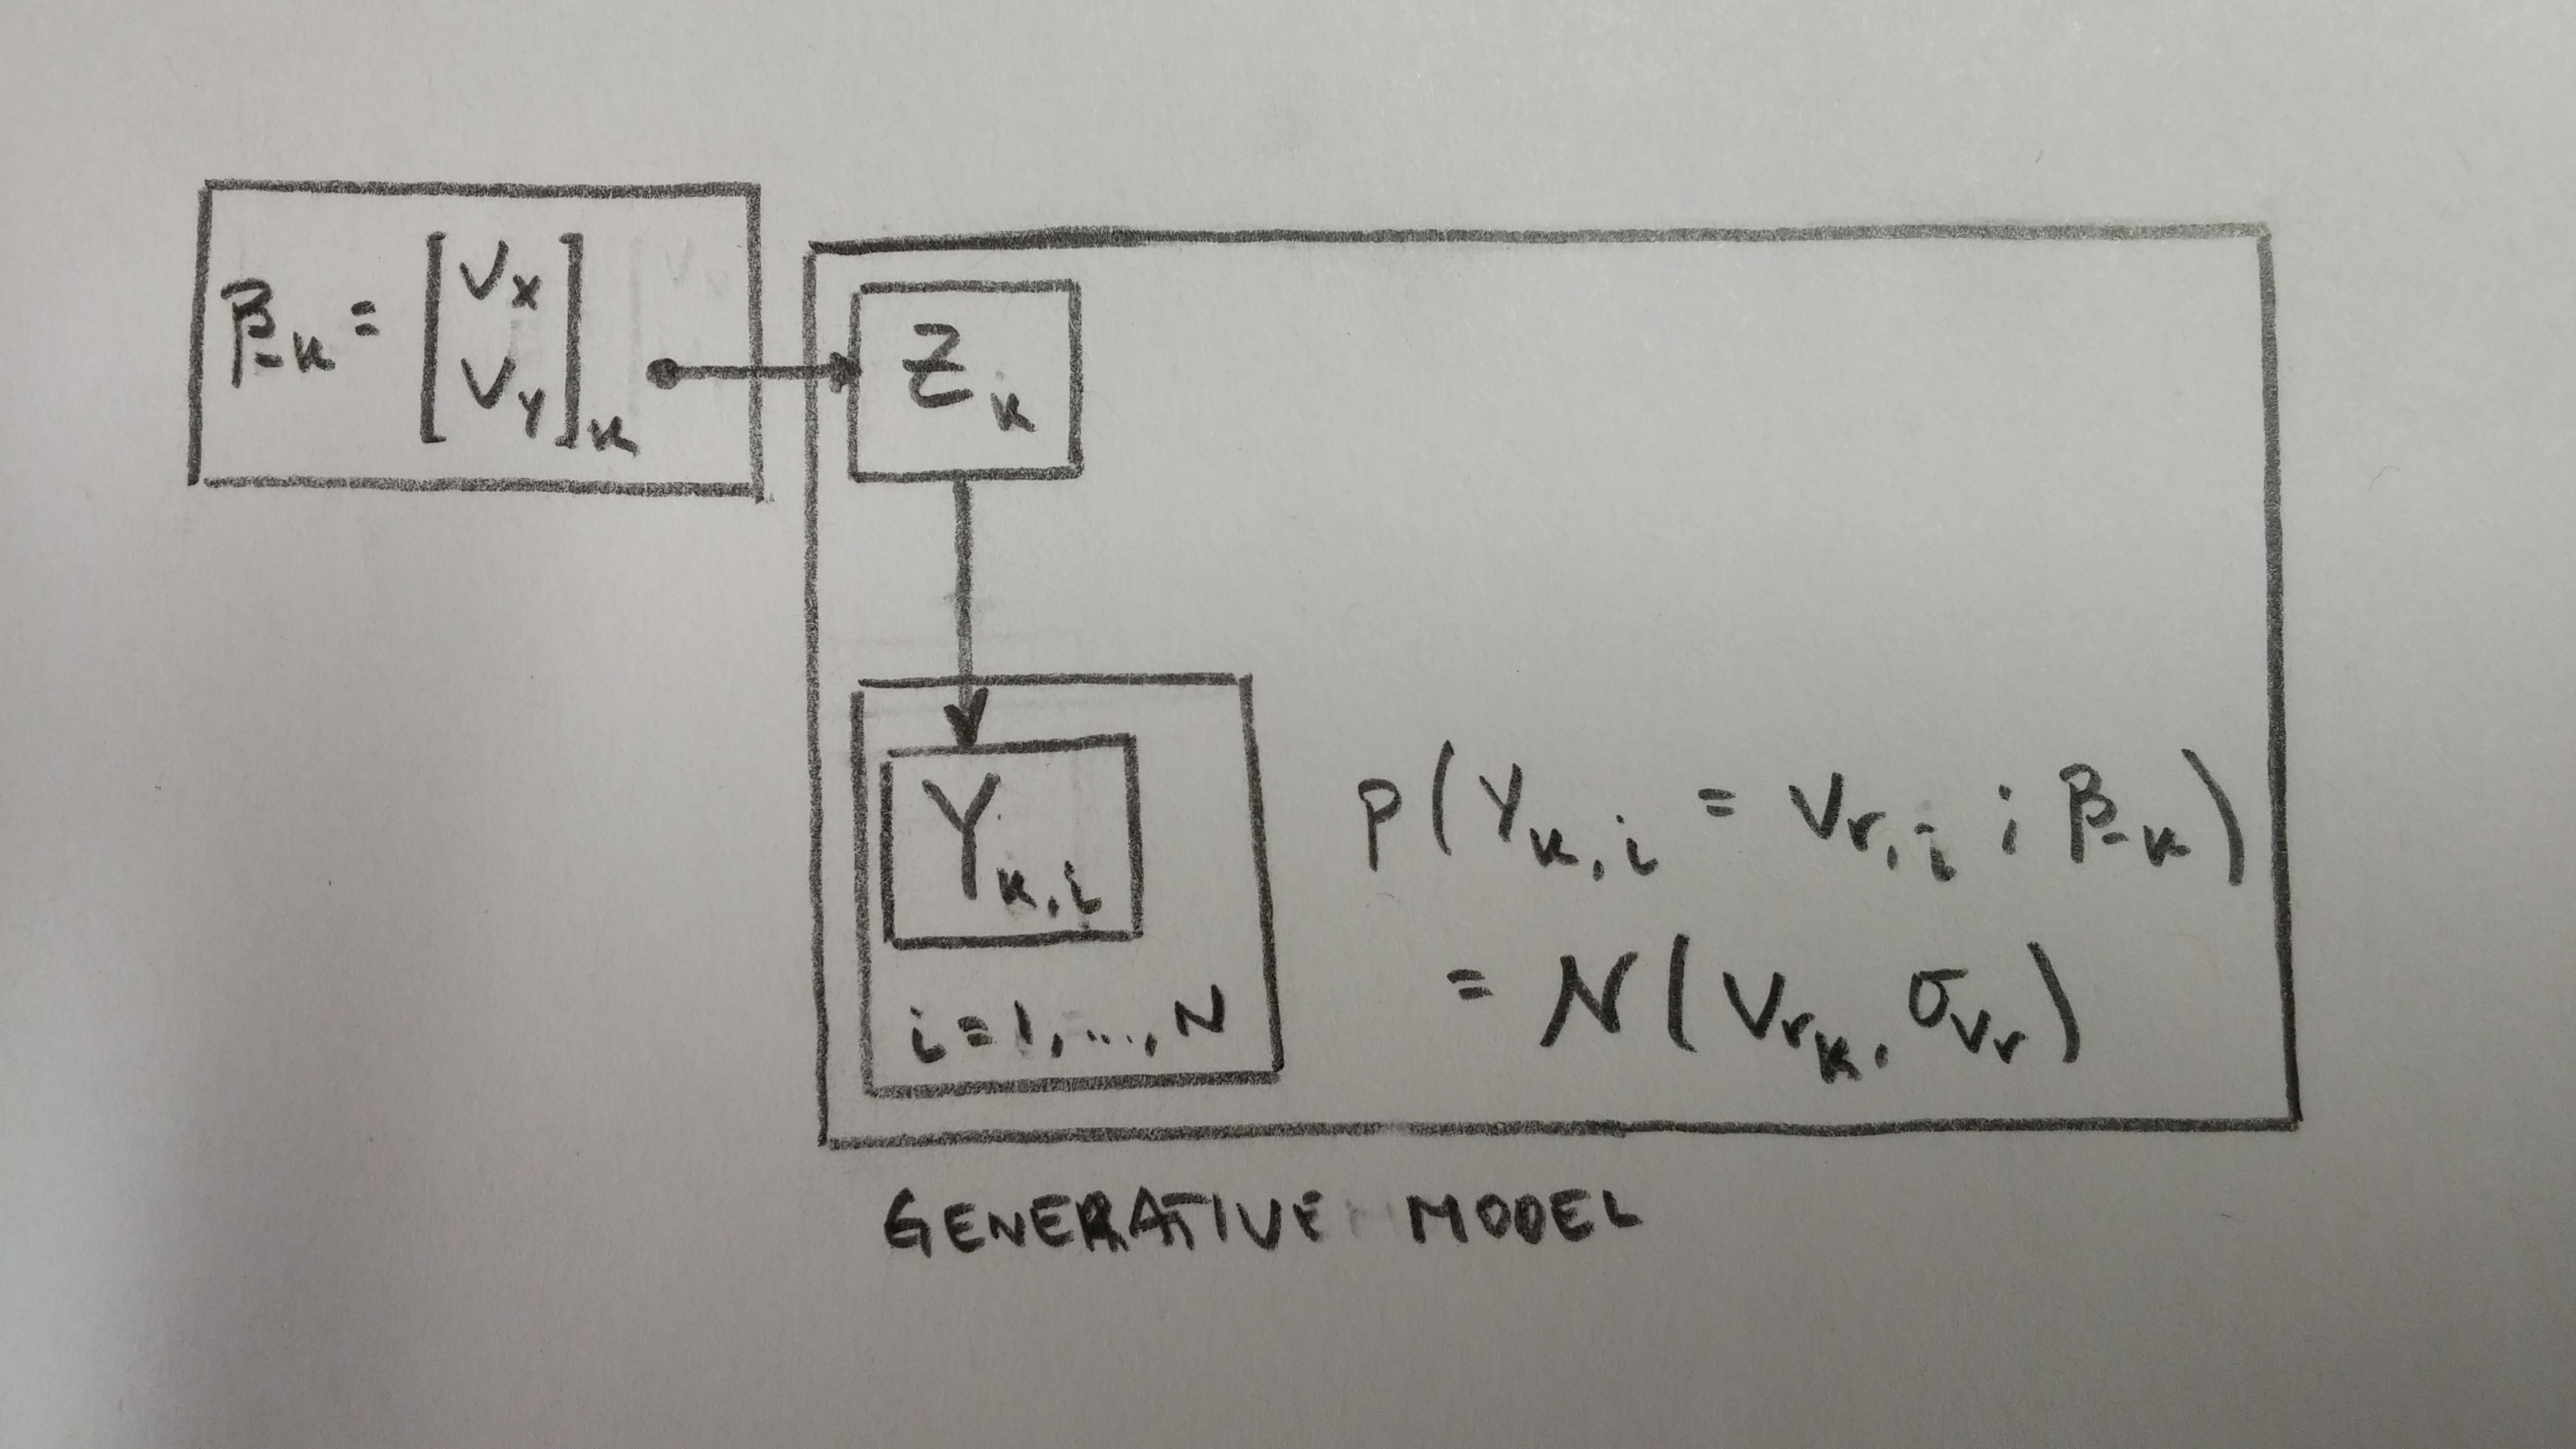 β_k = [v_x
v_y]_k
Z_k
Y_k,i
i = 1, ..., N
p(Y_k,i = v_r,i ; β_k)
= N(v_r_k, σ_v_r)
GENERATIVE MODEL